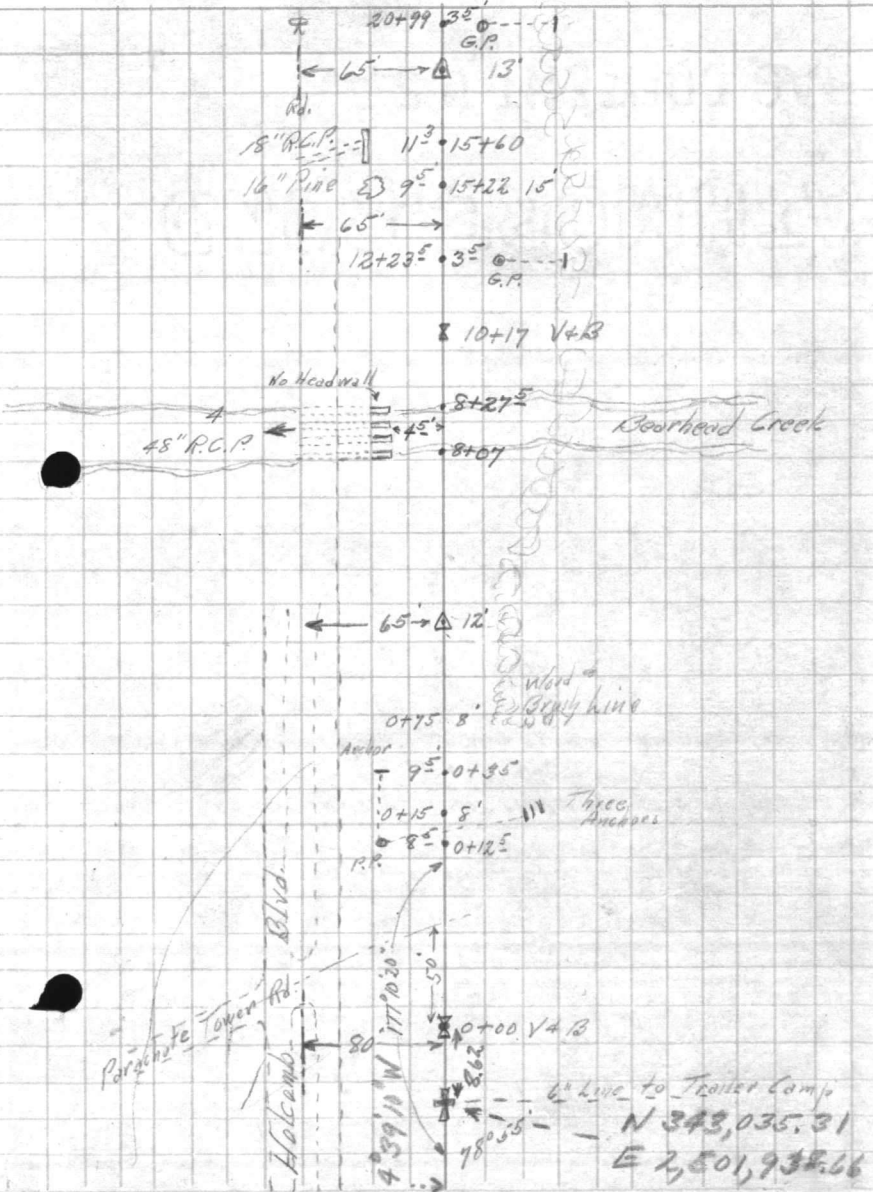 20+99 3⁵'
G.P.
65' 13'
Rd.
18" R.C.P. 11³ 15+60
16" Pine 9⁵' 15+22 15'
65'
12+23⁵ 3⁵'
G.P.
10+17 V&B
No Headwall
8+27⁵
4
48" R.C.P. 45' Bearhead Creek
8+07
65' 12'
Wood &
Brush Line
0+75 8'
Anchor
9⁵' 0+35
0+15 8' Three
Anchors
8⁵' 0+12⁵
P.P.
50'
Holcomb Blvd.
4°39'10"W 177°10'20"
Parachute Tower Rd.
0+00 V&B
80'
8.62
6" Line to Trailer Camp
78°55'
N 343,035.31